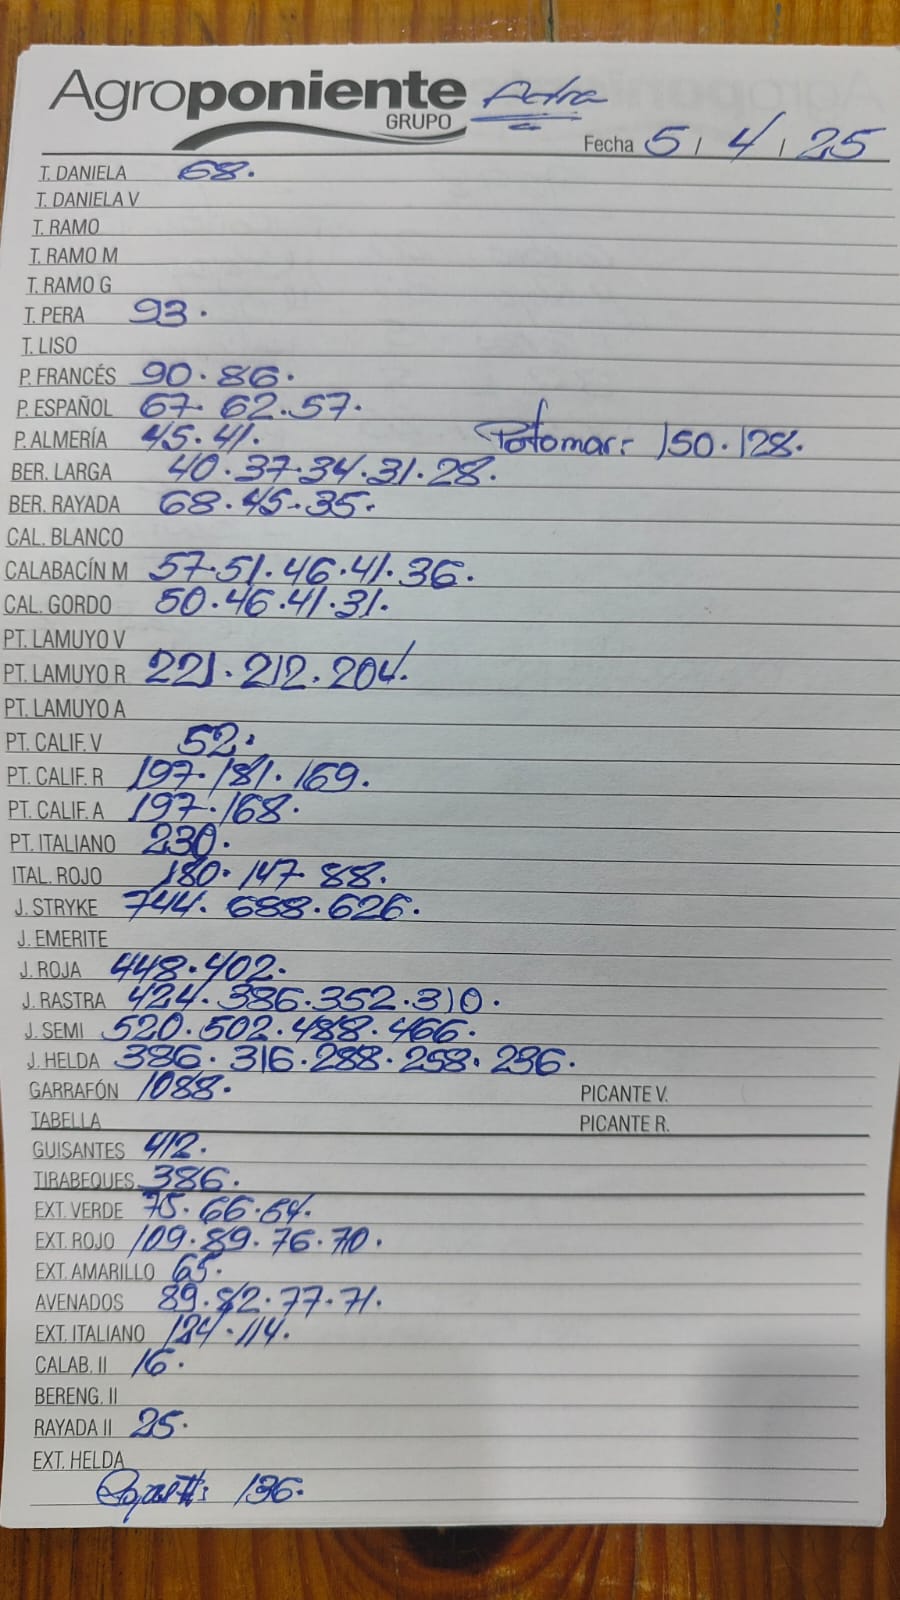 Agroponiente Adra
GRUPO
Fecha 5 / 4 / 25
T. DANIELA 68.
T. DANIELA V
T. RAMO
T. RAMO M
T. RAMO G
T. PERA 93.
T. LISO
P. FRANCÉS 90. 86.
P. ESPAÑOL 67. 62. 57.
P. ALMERÍA 45. 41. Potomar: 150. 128.
BER. LARGA 40. 37. 34. 31. 28.
BER. RAYADA 68. 45. 35.
CAL. BLANCO
CALABACÍN M 57. 51. 46. 41. 36.
CAL. GORDO 50. 46. 41. 31.
PT. LAMUYO V
PT. LAMUYO R 221. 212. 204.
PT. LAMUYO A
PT. CALIF. V 52.
PT. CALIF. R 197. 181. 169.
PT. CALIF. A 197. 168.
PT. ITALIANO 230.
ITAL. ROJO 180. 147. 88.
J. STRYKE 744. 688. 626.
J. EMERITE
J. ROJA 448. 402.
J. RASTRA 424. 386. 352. 310.
J. SEMI 520. 502. 488. 466.
J. HELDA 386. 316. 288. 258. 236.
GARRAFÓN 1088. PICANTE V.
TABELLA PICANTE R.
GUISANTES 412.
TIRABEQUES 386.
EXT. VERDE 75. 66. 64.
EXT. ROJO 109. 89. 76. 70.
EXT. AMARILLO 65.
AVENADOS 89. 82. 77. 71.
EXT. ITALIANO 124. 114.
CALAB. II 16.
BERENG. II
RAYADA II 25.
EXT. HELDA
136.